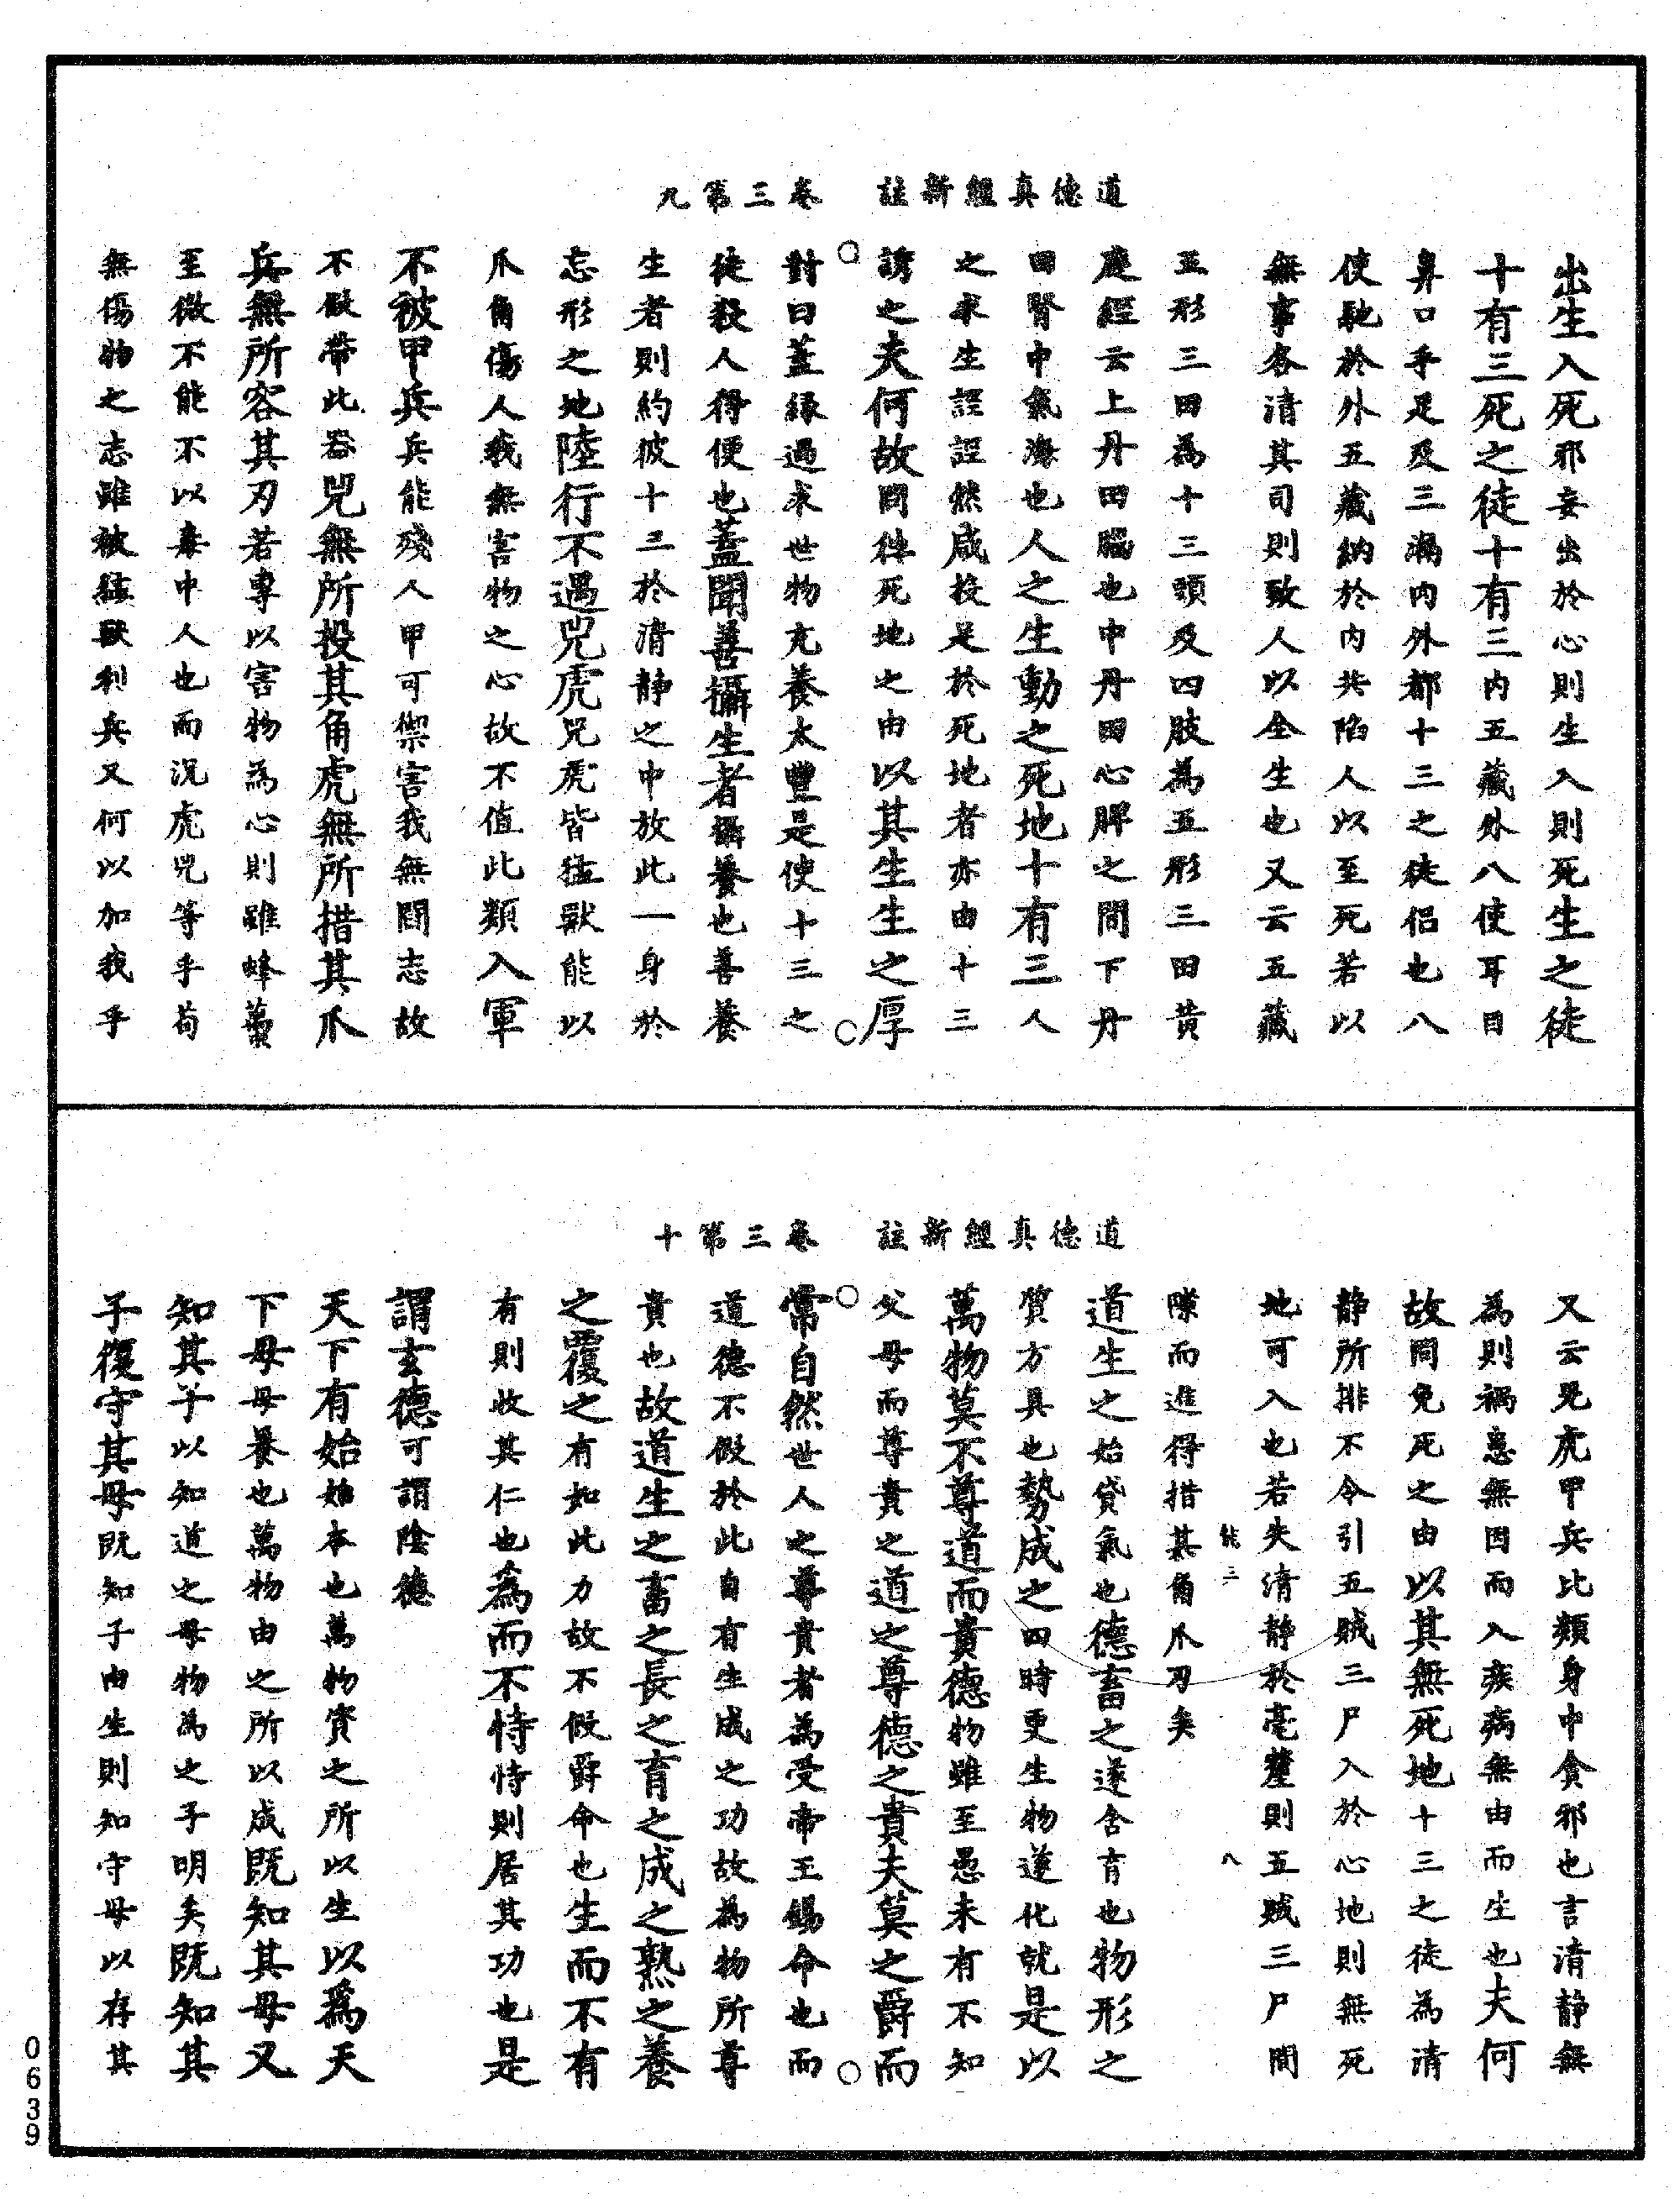 道德真經新註　卷三第九
出生入死邪妄出於心則生入則死生之徒
十有三死之徒十有三内五藏外八使耳目
鼻口手足及三漏内外都十三之徒侣也八
使馳於外五藏納於内共陷人以至死若以
無事各清其司則致人以全生也又云五藏
五形三田為十三頭及四肢為五形三田黄
庭經云上丹田腦也中丹田心脾之間下丹
田腎中氣海也人之生動之死地十有三人
之求生誑誑然咸投是於死地者亦由十三
誘之夫何故問徃死地之由以其生生之厚
對曰蓋緣過求世物充養太豐是使十三之
徒殺人得便也蓋聞善攝生者攝養也善養
生者則約彼十三於清静之中放此一身於
忘形之地陸行不遇兕虎兕虎皆猛獸能以
爪角傷人我無害物之心故不值此類入軍
不被甲兵兵能殘人甲可禦害我無鬪志故
不假帶此器兕無所投其角虎無所措其爪
兵無所容其刃若專以害物為心則雖蜂蠆
至微不能不以毒中人也而況虎兕等乎苟
無傷物之志雖被猛獸利兵又何以加我乎
道德真經新註　卷三第十
又云兕虎甲兵比類身中貪邪也言清静無
為則禍患無因而入疾病無由而生也夫何
故問免死之由以其無死地十三之徒為清
静所排不令引五賊三尸入於心地則無死
地可入也若失清静於毫釐則五賊三尸間
能三　八
隙而進得措其角爪刃矣
道生之始貸氣也德畜之遂含育也物形之
質方具也勢成之四時更生物遂化就是以
萬物莫不尊道而貴德物雖至愚未有不知
父母而尊貴之道之尊德之貴夫莫之爵而
常自然世人之尊貴者為受帝王錫命也而
道德不假於此自有生成之功故為物所尊
貴也故道生之畜之長之育之成之熟之養
之覆之有如此力故不假爵命也生而不有
有則收其仁也為而不恃恃則居其功也是
謂玄德可謂陰德
天下有始始本也萬物資之所以生以為天
下母母養也萬物由之所以成既知其母又
知其子以知道之母物為之子明矣既知其
子復守其母既知子由生則知守母以存其
0639